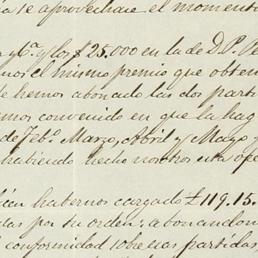 ta te aprovechare el momento
y Cª. y los $25.000 en la de D. P. Pe
mos el mismo premio que obten
te hemos abonado las dos parti
emos convenido en que la hag
de Febº. Marzo, Abril y Mayo y
habiendo hecho nosotros esta ope
bien habernos cargado £119.15.
das por su orden: abonandon
conformidad sobre esas partidas,